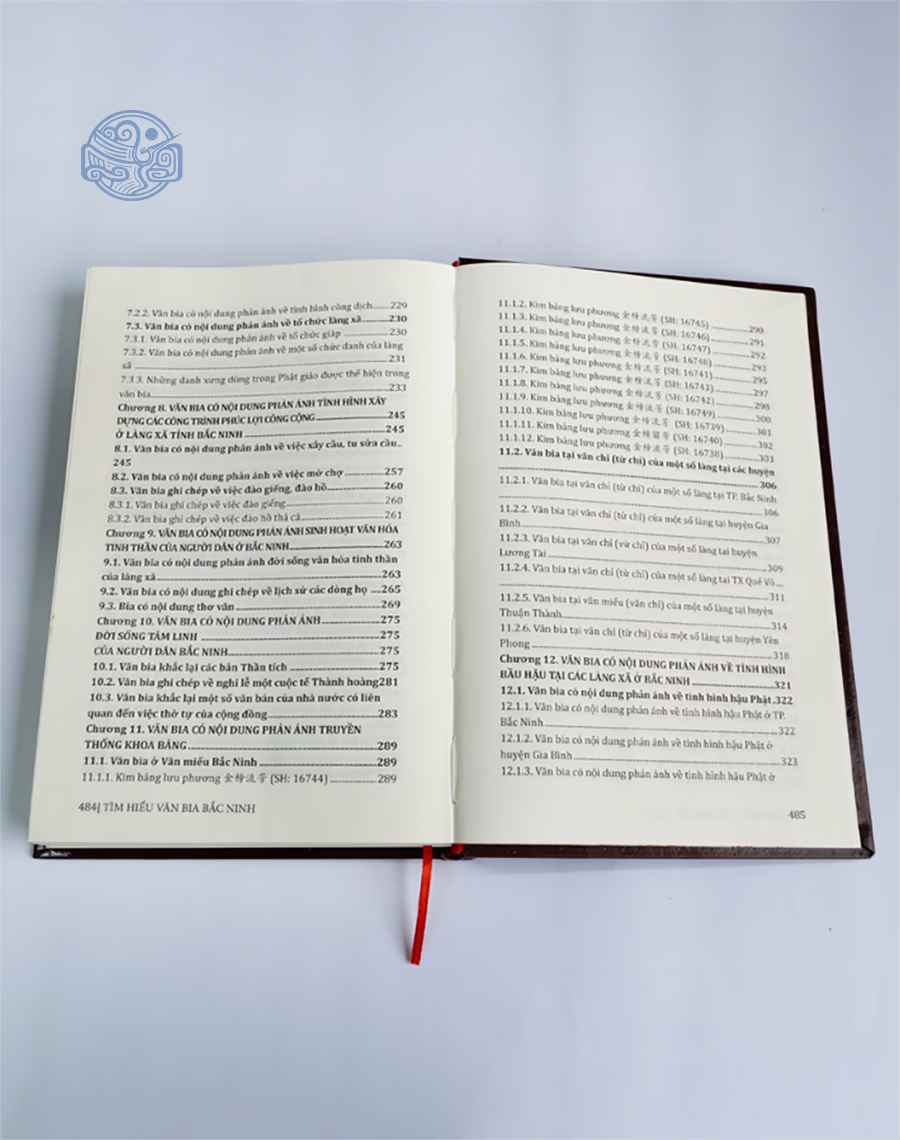 7.2.2. Văn bia có nội dung phản ánh về tình hình công dịch......229
7.3. Văn bia có nội dung phản ánh về tổ chức làng xã..........230
7.3.1. Văn bia có nội dung phản ánh về tổ chức giáp..........230
7.3.2. Văn bia có nội dung phản ánh về một số chức danh của làng
xã..........231
7.3.3. Những danh xưng dùng trong Phật giáo được thể hiện trong
văn bia..........233
Chương 8. VĂN BIA CÓ NỘI DUNG PHẢN ÁNH TÌNH HÌNH XÂY
DỰNG CÁC CÔNG TRÌNH PHÚC LỢI CÔNG CỘNG..........245
Ở LÀNG XÃ TỈNH BẮC NINH..........245
8.1. Văn bia có nội dung phản ánh về việc xây cầu, tu sửa cầu..
245
8.2. Văn bia có nội dung phản ánh về việc mở chợ..........257
8.3. Văn bia ghi chép về việc đào giếng, đào hồ..........260
8.3.1. Văn bia ghi chép về việc đào giếng..........260
8.3.2. Văn bia ghi chép về việc đào hồ thả cá..........261
Chương 9. VĂN BIA CÓ NỘI DUNG PHẢN ÁNH SINH HOẠT VĂN HÓA
TINH THẦN CỦA NGƯỜI DÂN Ở BẮC NINH..........263
9.1. Văn bia có nội dung phản ánh đời sống văn hóa tinh thần
của làng xã..........263
9.2. Văn bia có nội dung ghi chép về lịch sử các dòng họ ....265
9.3. Bia có nội dung thơ văn..........269
Chương 10. VĂN BIA CÓ NỘI DUNG PHẢN ÁNH..........275
ĐỜI SỐNG TÂM LINH..........275
CỦA NGƯỜI DÂN BẮC NINH..........275
10.1. Văn bia khắc lại các bản Thần tích..........275
10.2. Văn bia ghi chép về nghi lễ một cuộc tế Thành hoàng281
10.3. Văn bia khắc lại một số văn bản của nhà nước có liên
quan đến việc thờ tự của cộng đồng..........283
Chương 11. VĂN BIA CÓ NỘI DUNG PHẢN ÁNH TRUYỀN
THỐNG KHOA BẢNG..........289
11.1. Văn bia ở Văn miếu Bắc Ninh..........289
11.1.1. Kim bảng lưu phương 金榜流芳 (SH: 16744)..........289
484| TÌM HIỂU VĂN BIA BẮC NINH
11.1.2. Kim bảng lưu phương 金榜流芳 (SH: 16745)..........290
11.1.3. Kim bảng lưu phương 金榜流芳 (SH: 16746)..........291
11.1.4. Kim bảng lưu phương 金榜流芳 (SH: 16747)..........292
11.1.5. Kim bảng lưu phương 金榜流芳 (SH: 16748)..........293
11.1.6. Kim bảng lưu phương 金榜流芳 (SH: 16741)..........295
11.1.7. Kim bảng lưu phương 金榜流芳 (SH: 16743)..........297
11.1.8. Kim bảng lưu phương 金榜流芳 (SH: 16742)..........298
11.1.9. Kim bảng lưu phương 金榜流芳 (SH: 16749)..........300
11.1.10. Kim bảng lưu phương 金榜流芳 (SH: 16739)..........301
11.1.11. Kim bảng lưu phương 金榜留芳 (SH: 16740)..........302
11.1.12. Kim bảng lưu phương 金榜流芳 (SH: 16738)..........303
11.2. Văn bia tại văn chỉ (từ chỉ) của một số làng tại các huyện
..........306
11.2.1. Văn bia tại văn chỉ (từ chỉ) của một số làng tại TP. Bắc Ninh
..........306
11.2.2. Văn bia tại văn chỉ (từ chỉ) của một số làng tại huyện Gia
Bình..........307
11.2.3. Văn bia tại văn chỉ (vừ chỉ) của một số làng tai huyện
Lương Tài..........309
11.2.4. Văn bia tại văn chỉ (từ chỉ) của một số làng tai TX Quế Võ ...
..........311
11.2.5. Văn bia tại văn miếu (văn chỉ) của một số làng tại huyện
Thuận Thành..........314
11.2.6. Văn bia tại văn chỉ (từ chỉ) của một số làng tại huyện Yên
Phong..........318
Chương 12. VĂN BIA CÓ NỘI DUNG PHẢN ÁNH VỀ TÌNH HÌNH
BẦU HẬU TẠI CÁC LÀNG XÃ Ở BẮC NINH..........321
12.1. Văn bia có nội dung phản ánh về tình hình hậu Phật.322
12.1.1. Văn bia có nội dung phản ánh về tình hình hậu Phật ở TP.
Bắc Ninh..........322
12.1.2. Văn bia có nội dung phản ánh về tình hình hậu Phật ở
huyện Gia Bình..........323
12.1.3. Văn bia có nội dung phản ánh về tình hình hậu Phật ở
485